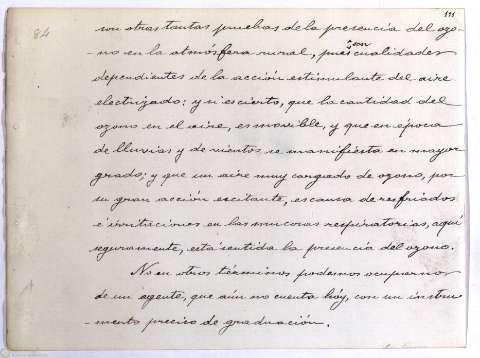 84
111
son otras tantas pruebas de la presencia del ozo-
-no en la atmósfera rural, pues son cualidades
dependientes de la acción estimulante del aire
electrizado; y si es cierto, que la cantidad del
ozono en el aire, es movible, y que en época
de lluvias y de vientos se manifiesta en mayor
grado; y que un aire muy cargado de ozono, por
su gran acción escitante, es causa de resfriados
é irritaciones en las mucosas respiratorias, aquí
seguramente, está sentida la presencia del ozono.
No en otros términos podemos ocuparnos
de un agente, que aún no cuenta hóy, con un instru-
-mento preciso de graduación.